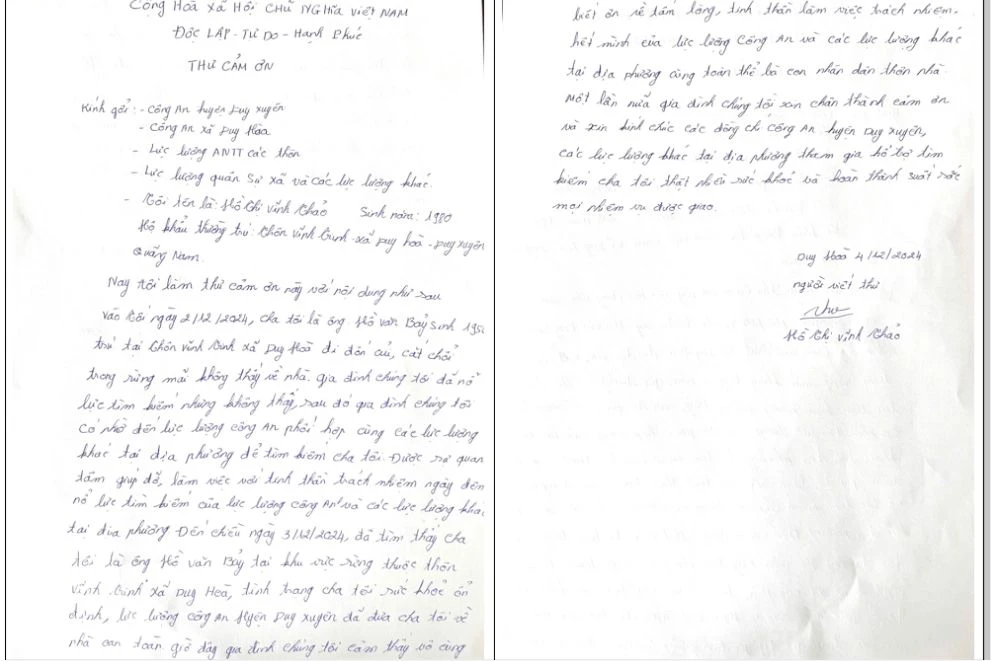 Cộng Hoà Xã Hội Chủ Nghĩa Việt Nam
Độc Lập - Tự Do - Hạnh Phúc
THƯ CẢM ƠN
Kính gởi: - Công An huyện Duy Xuyên
- Công An xã Duy Hòa
- Lực lượng ANTT các thôn
- Lực lượng quân sự xã và các lực lượng khác.
- Tôi tên là: Hồ Thị Vĩnh Thảo Sinh năm: 1980
Hộ khẩu thường trú: Thôn Vĩnh Trinh - xã Duy Hoà - Duy Xuyên
Quảng Nam.
Nay tôi làm thư cảm ơn này với nội dung như sau
vào tối ngày 2/12/2024, cha tôi là ông Hồ Văn Bảy sinh 195
trú tại thôn Vĩnh Trinh xã Duy Hoà đi đốn củi, cắt chổi
trong rừng mãi không thấy về nhà. Gia đình chúng tôi đã nổ
lực tìm kiếm nhưng không thấy, sau đó gia đình chúng tôi
có nhờ đến lực lượng công An phối hợp cùng các lực lượng
khác tại địa phương để tìm kiếm cha tôi. Được sự quan
tâm giúp đỡ, làm việc với tinh thần trách nhiệm ngày đêm
nổ lực tìm kiếm của lực lượng công An và các lực lượng khác
tại địa phương Đến chiều ngày 3/12/2024, đã tìm thấy cha
tôi là ông Hồ Văn Bảy tại khu vực rừng thuộc thôn
Vĩnh Trinh xã Duy Hoà, tình trạng cha tôi sức khỏe ổn
định, lực lượng công An Huyện Duy Xuyên đã đưa cha tôi về
nhà an toàn giờ đây gia đình chúng tôi cảm thấy vô cùng
biết ơn về tấm lòng, tinh thần làm việc trách nhiệm,
hết mình của lực lượng Công An và các lực lượng khác
tại địa phương cùng toàn thể bà con nhân dân thôn nhà
Một lần nữa gia đình chúng tôi xin chân thành cảm ơn
và xin kính chúc các đồng chí công An huyện Duy Xuyên,
các lực lượng khác tại địa phương tham gia hỗ trợ tìm
kiếm cha tôi thật nhiều sức khoẻ và hoàn thành xuất sắc
mọi nhiệm vụ được giao.
Duy Hoà 4/12/2024
người viết thư
Hồ Thị Vĩnh Thảo